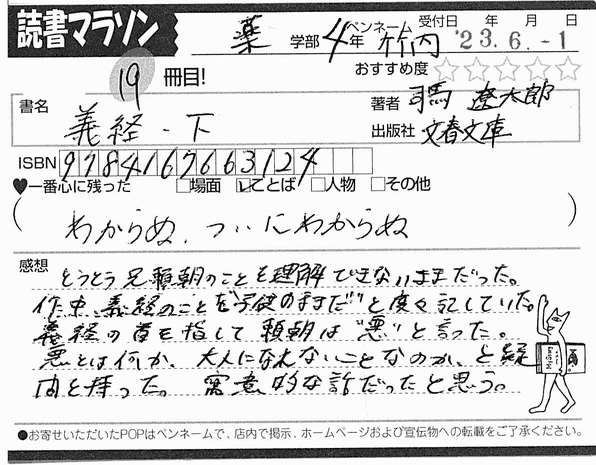 読書マラソン
薬 学部 4年 ペンネーム 竹内 受付日 年 月 日 '23.6.-1
19冊目!
おすすめ度 ☆☆☆☆☆
書名 義経・下
著者 司馬遼太郎
出版社 文春文庫
ISBN 9784167663124
♥一番心に残った □場面 ☑ことば □人物 □その他
(わからぬ、ついにわからぬ)
感想
とうとう兄頼朝のことも理解できないままだった。
作中、義経のことを"子供のままだ"と度々記していた。
義経の首を指して頼朝は"悪"と言った。
悪とは何か、大人になれないことなのか、と疑
問を持った。寓意的な話だったと思う。
●お寄せいただいたPOPはペンネームで、店内で掲示、ホームページおよび宣伝物への転載をご了承ください。